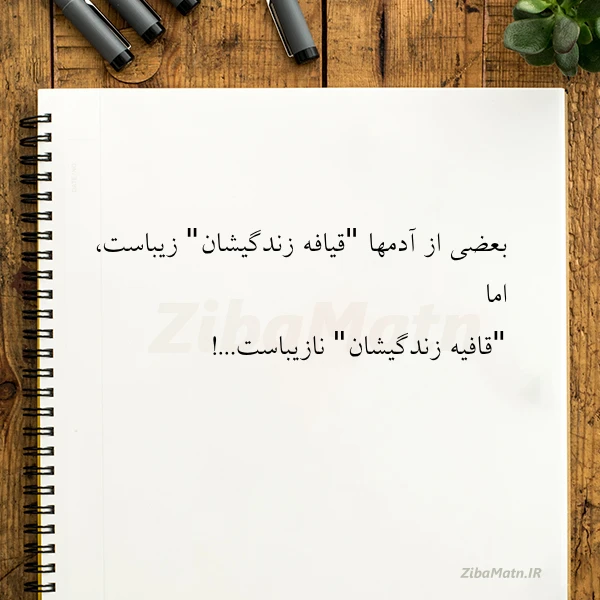 بعضی از آدمها "قیافه زندگیشان" زیباست،
اما
"قافیه زندگیشان" نازیباست...!
ZibaMatn
ZibaMatn.IR